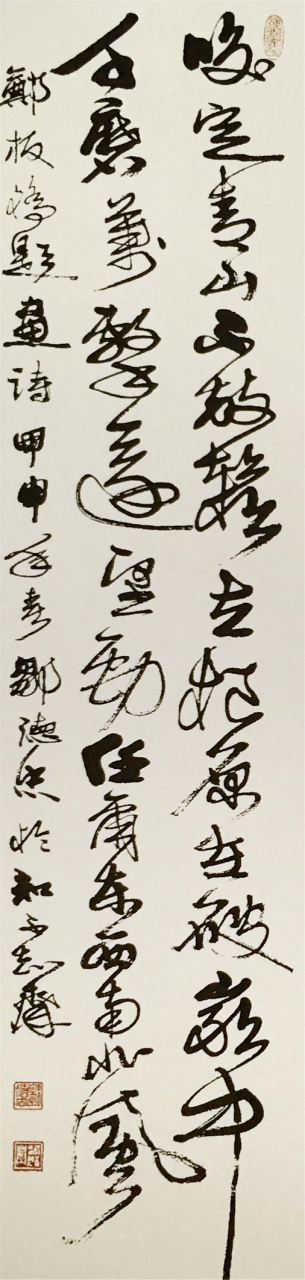 咬定青山不放鬆立根原在破巖中
千磨萬擊還堅勁任爾東西南北風
鄭板橋題畫詩甲申年春鄒德忠於知不足齋